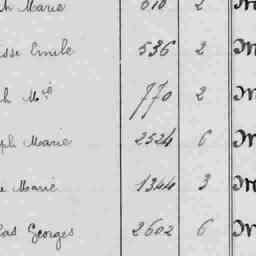 Marie 610 2
sse Emile 536 2
h Mie 770 2
ph Marie 2524 6
e Marie 1344 3
las Georges 2602 6